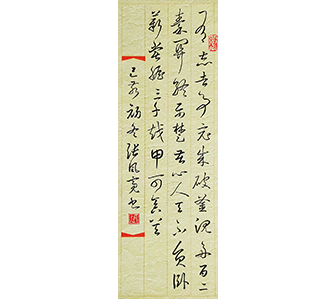 有志者事竟成破釜沉舟百二
秦関終属楚苦心人天不負卧
薪尝胆三千越甲可吞吴
己亥初冬张凤书